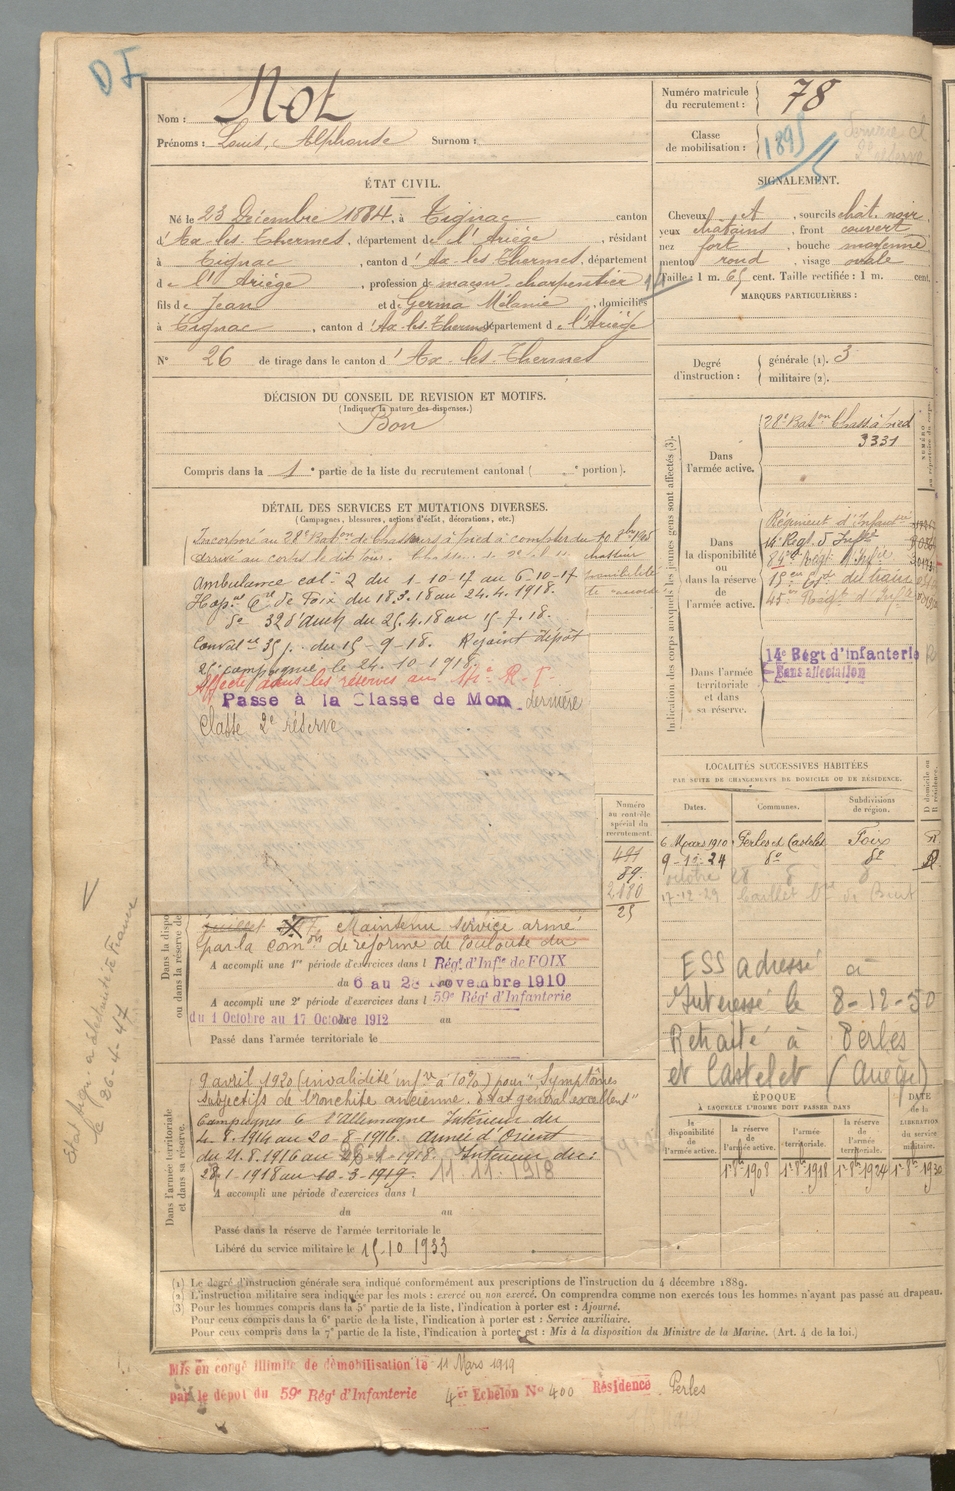 D I
Nom : Not
Prénoms : Louis, Alphonse Surnom :
Numéro matricule
du recrutement : 78
Classe
de mobilisation : 1895
ÉTAT CIVIL.
Né le 23 Décembre 1884, à Tignac canton
d'Ax-les-Thermes, département de l'Ariège, résidant
à Tignac, canton d'Ax-les-Thermes, département
de l'Ariège, profession de maçon, charpentier
fils de Jean et de Germa Mélanie, domiciliés
à Tignac, canton d'Ax-les-Thermes département de l'Ariège
N° 26 de tirage dans le canton d'Ax-les-Thermes
SIGNALEMENT.
Cheveux , sourcils chât. noir,
yeux châtains, front couvert,
nez fort, bouche moyenne,
menton rond, visage ovale
Taille : 1 m. 65 cent. Taille rectifiée : 1 m. cent.
MARQUES PARTICULIÈRES :
Degré
d'instruction :
générale (1). 3
militaire (2).
DÉCISION DU CONSEIL DE REVISION ET MOTIFS.
(Indiquer la nature des dispenses.)
Bon
Compris dans la 1e partie de la liste du recrutement cantonal ( e portion).
DÉTAIL DES SERVICES ET MUTATIONS DIVERSES.
(Campagnes, blessures, actions d'éclat, décorations, etc.)
Incorporé au 28e Baton de Chasseurs à pied à compter du
arrivé au corps le dit jour. chasseur
Ambulance col. 2 du 1-10-17 au 6-10-17
Hopal de Foix du 18.3.18 au 24.4.1918.
do 32 d'Auch du 25.4.18 au 15-7.18.
Convalce 35 j. du 15-9-18. Rejoint dépôt
campagnie le 24.10.1918.
Affecté dans les réserves au R. I.
Passe à la Classe de Mon dernière
Classe 2e réserve
Indication des corps auxquels les jeunes gens sont affectés (3).
Dans
l'armée active.
28e Baton Chass à pied
3331
Dans
la disponibilité
ou
dans la réserve
de
l'armée active.
Régiment d'Infanterie
14e Régt d'Inft
Régt d'Infie
du train
45e Régt d'Infie
Dans l'armée
territoriale
et dans
sa réserve.
14e Régt d'infanterie
Sans affectation
LOCALITÉS SUCCESSIVES HABITÉES
PAR SUITE DE CHANGEMENTS DE DOMICILE OU DE RÉSIDENCE.
Dates. Communes. Subdivisions
de région. D domicile ou
R résidence.
6 Mars 1910 Perles et Castelet Foix R
9-12-24 do do R
octobre 28
17-12-29
Numéro
au contrôle
spécial du
recrutement.
491
89.
2180
25
Dans la dispo
ou dans la réserve de
juillet Maintenu service armé
par la comon de réforme de Toulouse du
A accompli une 1re période d'exercices dans l Régt d'Infie de FOIX
du 6 au 2 Novembre 1910
A accompli une 2e période d'exercices dans l 59e Régt d'Infanterie
du 1 Octobre au 17 Octobre 1912 au
Passé dans l'armée territoriale le
ESS adressé à
Intéressé le 8-12-50
Retraité à Perles
et Castelet (Ariège)
Dans l'armée territoriale
et dans sa réserve.
9 avril 1920 (invalidité infre à 10%) pour "Symptômes
subjectifs de bronchite ancienne. État général excellent"
Campagnes c. l'Allemagne Intérieur du
4.8.1914 au 20-8-1916. Armée d'Orient
du 21.8.1916 au 1-1918. Intérieur du :
28.1-1918 au 10-3-1919. 11-11-1918
A accompli une période d'exercices dans l
du au
Passé dans la réserve de l'armée territoriale le
Libéré du service militaire le 15-10 1933
ÉPOQUE
À LAQUELLE L'HOMME DOIT PASSER DANS
DATE
de la
LIBÉRATION
du service
militaire.
la
disponibilité
de
l'armée active.
la
réserve de
l'armée active.
l'armée
territoriale.
la
réserve de
l'armée
territoriale.
1er 8bre 1908 1er 8bre 1918 1er 8bre 1924 1er 8bre 1930
(1) Le degré d'instruction générale sera indiqué conformément aux prescriptions de l'instruction du 4 décembre 1889.
(2) L'instruction militaire sera indiquée par les mots : exercé ou non exercé. On comprendra comme non exercés tous les hommes n'ayant pas passé au drapeau.
(3) Pour les hommes compris dans la 5e partie de la liste, l'indication à porter est : Ajourné.
Pour ceux compris dans la 6e partie de la liste, l'indication à porter est : Service auxiliaire.
Pour ceux compris dans la 7e partie de la liste, l'indication à porter est : Mis à la disposition du Ministre de la Marine. (Art. 4 de la loi.)
Mis en congé illimité de démobilisation le 11 Mars 1919
par le dépôt du 59e Régt d'Infanterie 4e Echelon No 400 Résidence Perles
le 26-4-47